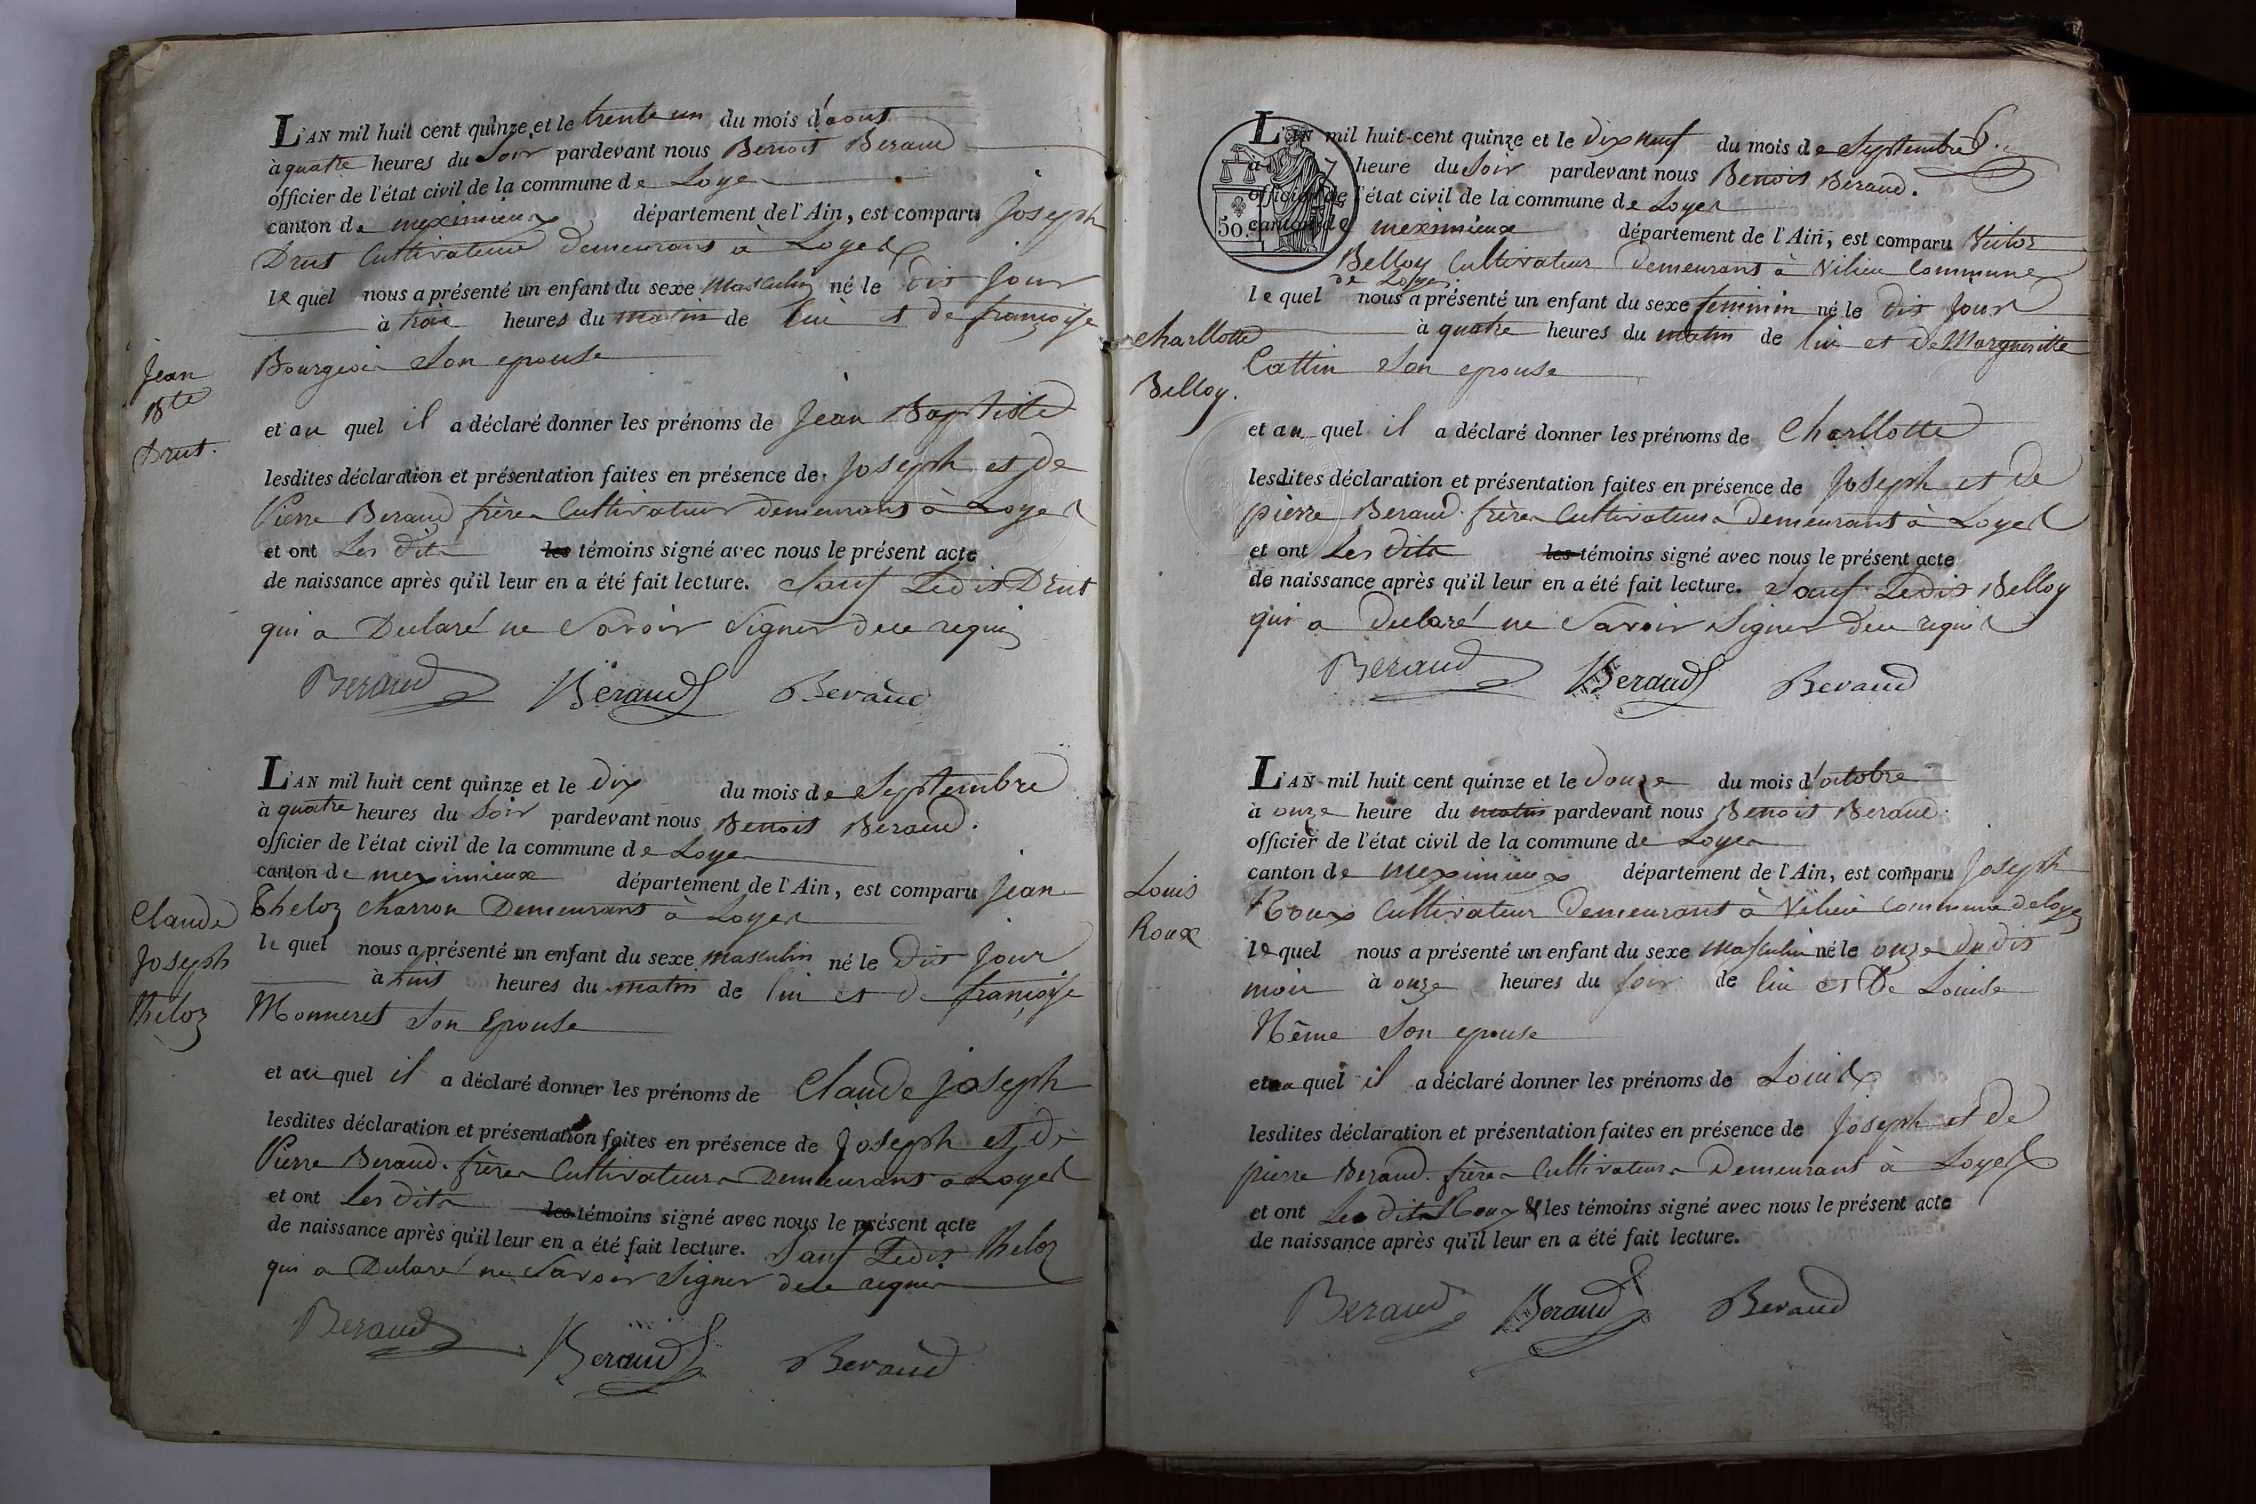 L'AN mil huit cent quinze et le trente un du mois d'aout
à quatre heures du Soir pardevant nous Benoit Beraud
officier de l'état civil de la commune de Loyes
canton de meximieux département de l'Ain, est comparu Joseph
Drut Cultivateur demeurant à Loyes
le quel nous a présenté un enfant du sexe Masculin né le dit jour
à trois heures du matin de lui et de françoise
Bourgeois Son epouse
Jean
Bte
Drut.
et au quel il a déclaré donner les prénoms de Jean Baptiste
lesdites déclaration et présentation faites en présence de Joseph et de
Pierre Beraud frères Cultivateurs demeurant à Loyes
et ont Les dits les témoins signé avec nous le présent acte
de naissance après qu'il leur en a été fait lecture. Sauf Ledit Drut
qui a Declaré ne Savoir Signer de ce requis
Beraud Beraud Beraud
L'AN mil huit cent quinze et le dix du mois de Septembre
à quatre heures du Soir pardevant nous Benoit Beraud.
officier de l'état civil de la commune de Loyes
canton de meximieux département de l'Ain, est comparu Jean
Theloz charron Demeurant à Loyes
le quel nous a présenté un enfant du sexe masculin né le dit jour
à huit heures du matin de lui et de françoise
Monneret Son Epouse
Claude
Joseph
Theloz
et au quel il a déclaré donner les prénoms de Claude Joseph
lesdites déclaration et présentation faites en présence de Joseph et de
Pierre Beraud. frères Cultivateurs Demeurant à Loyes
et ont Les dits les témoins signé avec nous le présent acte
de naissance après qu'il leur en a été fait lecture. Sauf Ledit Theloz
qui a Declaré ne Savoir Signer de ce requis
Beraud Beraud Beraud
6.
L'AN mil huit-cent quinze et le dix neuf du mois de Septembre
à 7 heure du Soir pardevant nous Benoit Beraud.
officier de l'état civil de la commune de Loyes
50.
canton de meximieux département de l'Ain, est comparu Victor
Belloy Cultivateur Demeurant à Vilieu Commune
de Loyes.
le quel nous a présenté un enfant du sexe feminin né le dit jour
à quatre heures du matin de lui et de Margueritte
Cattin Son epouse
Charllotte
Belloy.
et au quel il a déclaré donner les prénoms de Charllotte
lesdites déclaration et présentation faites en présence de Joseph et de
pierre Beraud. frères Cultivateurs demeurant à Loyes
et ont Les dits les témoins signé avec nous le présent acte
de naissance après qu'il leur en a été fait lecture. Sauf Ledit Belloy
qui a declaré ne Savoir Signer de ce requis
Beraud Beraud Beraud
L'AN mil huit cent quinze et le douze du mois d'octobre
à onze heure du matin pardevant nous Benoit Beraud
officier de l'état civil de la commune de Loyes
canton de meximieux département de l'Ain, est comparu Joseph
Roux Cultivateur Demeurant à Vilieu Commune de loyes
le quel nous a présenté un enfant du sexe masculin né le onze du dit
mois à onze heures du soir de lui et De Louise
Nême Son epouse
Louis
Roux
et au quel il a déclaré donner les prénoms de Louis
lesdites déclaration et présentation faites en présence de Joseph et de
pierre Beraud. frères Cultivateurs Demeurant à Loyes
et ont Les dits Roux & les témoins signé avec nous le présent acte
de naissance après qu'il leur en a été fait lecture.
Beraud Beraud Beraud